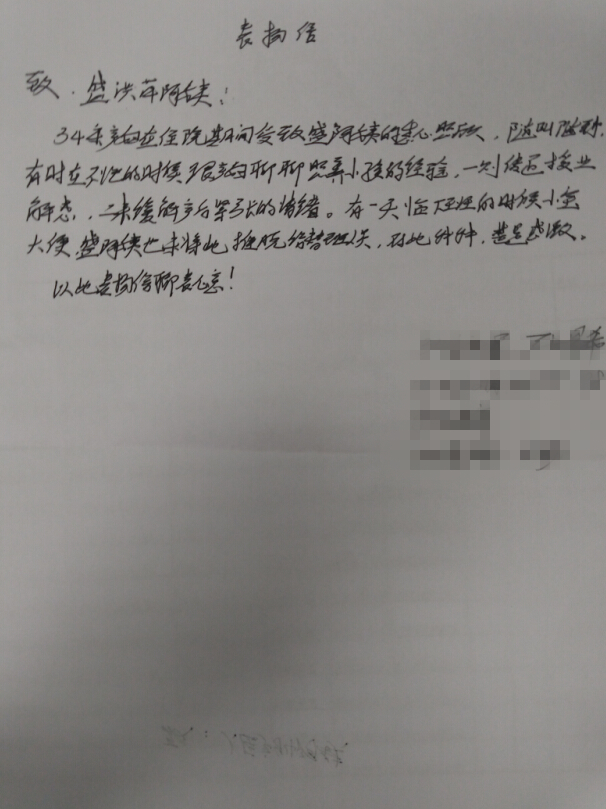 表扬信
致：盛洪萍阿姨：
34床产妇在住院期间受致盛阿姨的悉心照顾，随叫随到，
有时在不忙的时候跟产妇聊聊照弄小孩的经验，一则传道授业
解惑，二来缓解产后紧张的情绪。有一天临下班的时候小宝
大便，盛阿姨也未将此推脱给替班人，如此种种，甚是感激。
以此表扬信聊表心意！